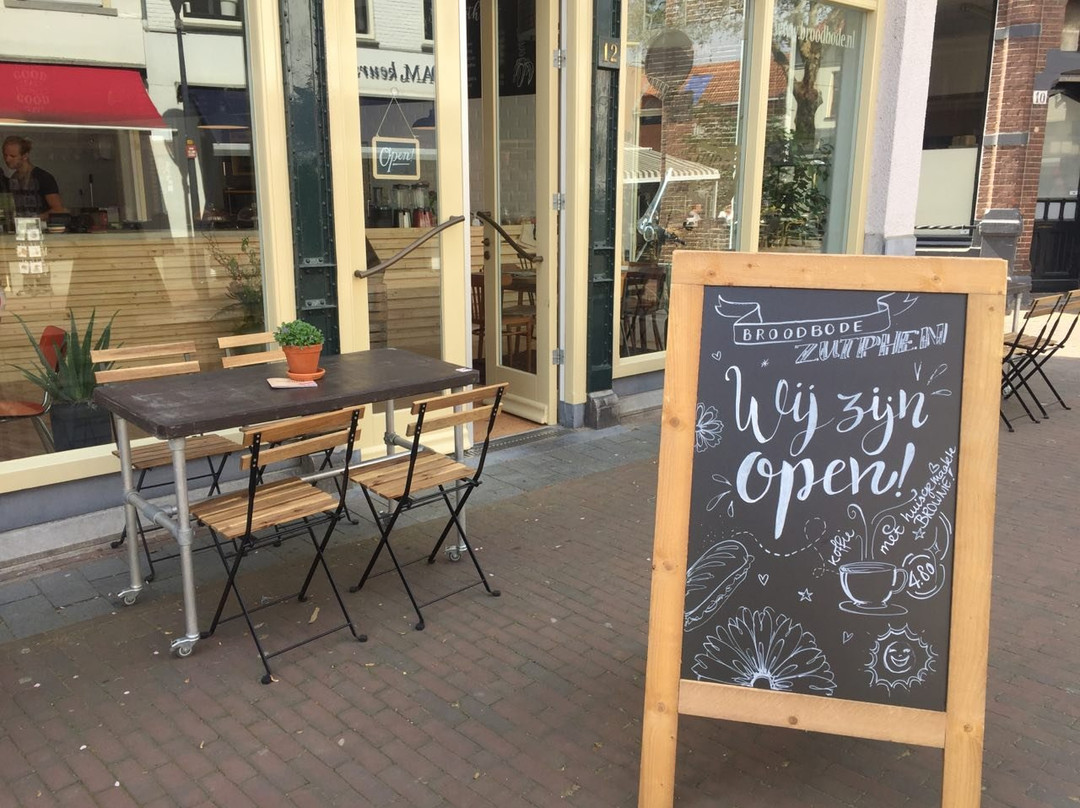 GOOD
FOOD
DAM, keur
12
www.broodbode.nl
Open
10
BROODBODE
ZUTPHEN
Wij zijn
open!
koffie
met huisgemaakte
BROWNIE!
4.80